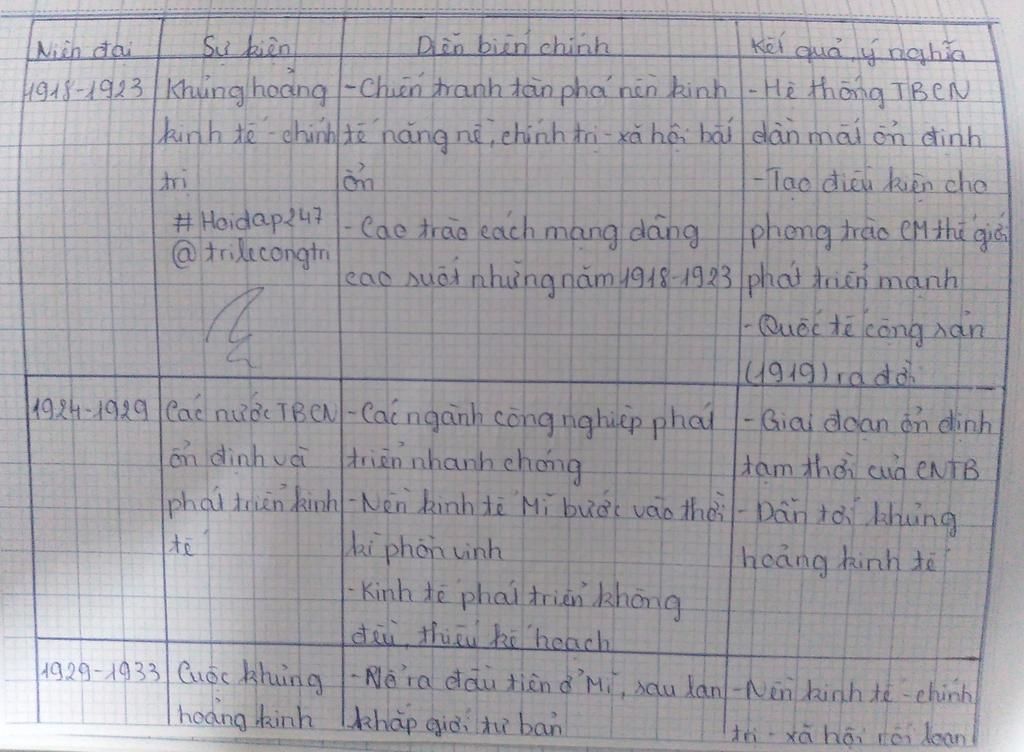 Niên đại
Sự kiện
Diễn biến chính
Kết quả, ý nghĩa
1918-1923
Khủng hoảng
kinh tế - chính
trị
#Hoidap247
@trilecongtri
- Chiến tranh tàn phá nền kinh
tế nặng nề, chính trị - xã hội bất
ổn
- Cao trào cách mạng dâng
cao suốt những năm 1918-1923
- Hệ thống TBCN
dần mất ổn định
- Tạo điều kiện cho
phong trào CM thế giới
phát triển mạnh
- Quốc tế cộng sản
(1919) ra đời
1924-1929
Các nước TBCN
ổn định và
phát triển kinh
tế
- Các ngành công nghiệp phát
triển nhanh chóng
- Nền kinh tế Mĩ bước vào thời
kì phồn vinh
- Kinh tế phát triển không
đều, thiếu kế hoạch
- Giai đoạn ổn định
tạm thời của CNTB
- Dẫn tới khủng
hoảng kinh tế
1929-1933
Cuộc khủng
hoảng kinh
- Nổ ra đầu tiên ở Mĩ, sau lan
khắp giới tư bản
- Nền kinh tế - chính
trị - xã hội rối loạn